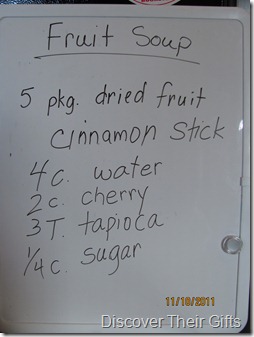 Fruit Soup
5 pkg. dried fruit
cinnamon stick
4 c. water
2 c. cherry
3 T. tapioca
1/4 c. sugar
11/10/2011
Discover Their Gifts